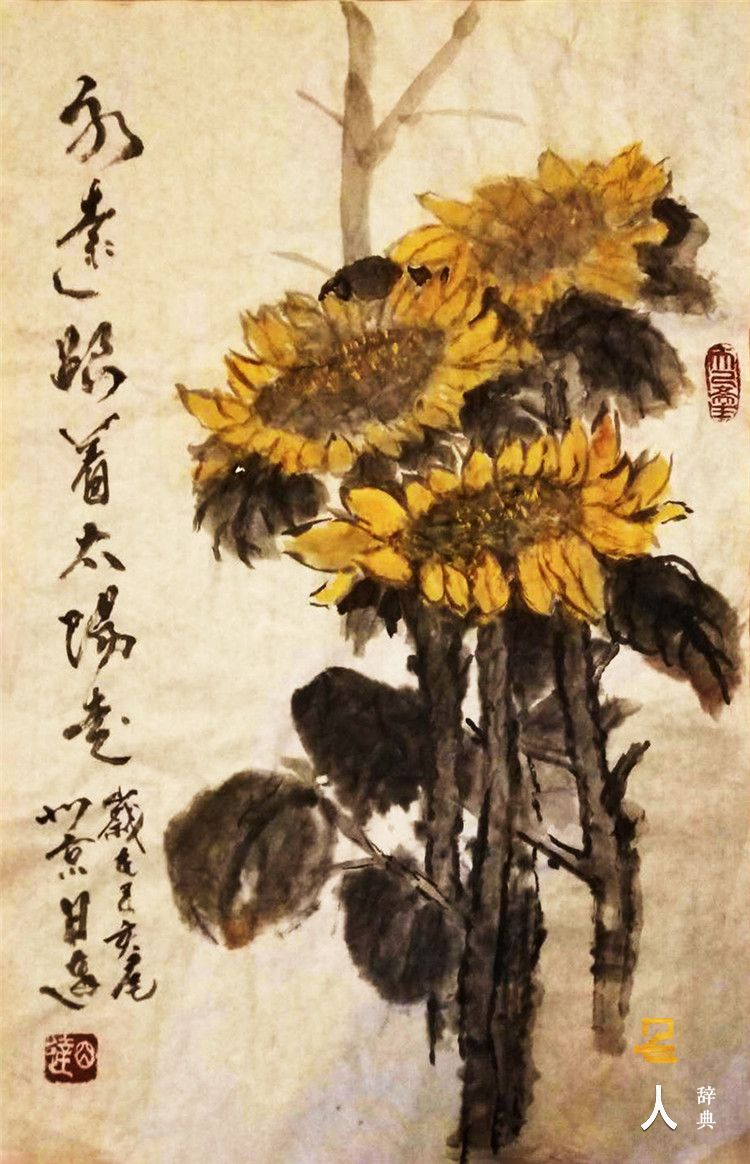 永遠跟着太陽走
歲在己亥尾
北京日達
日達
名人
辞典